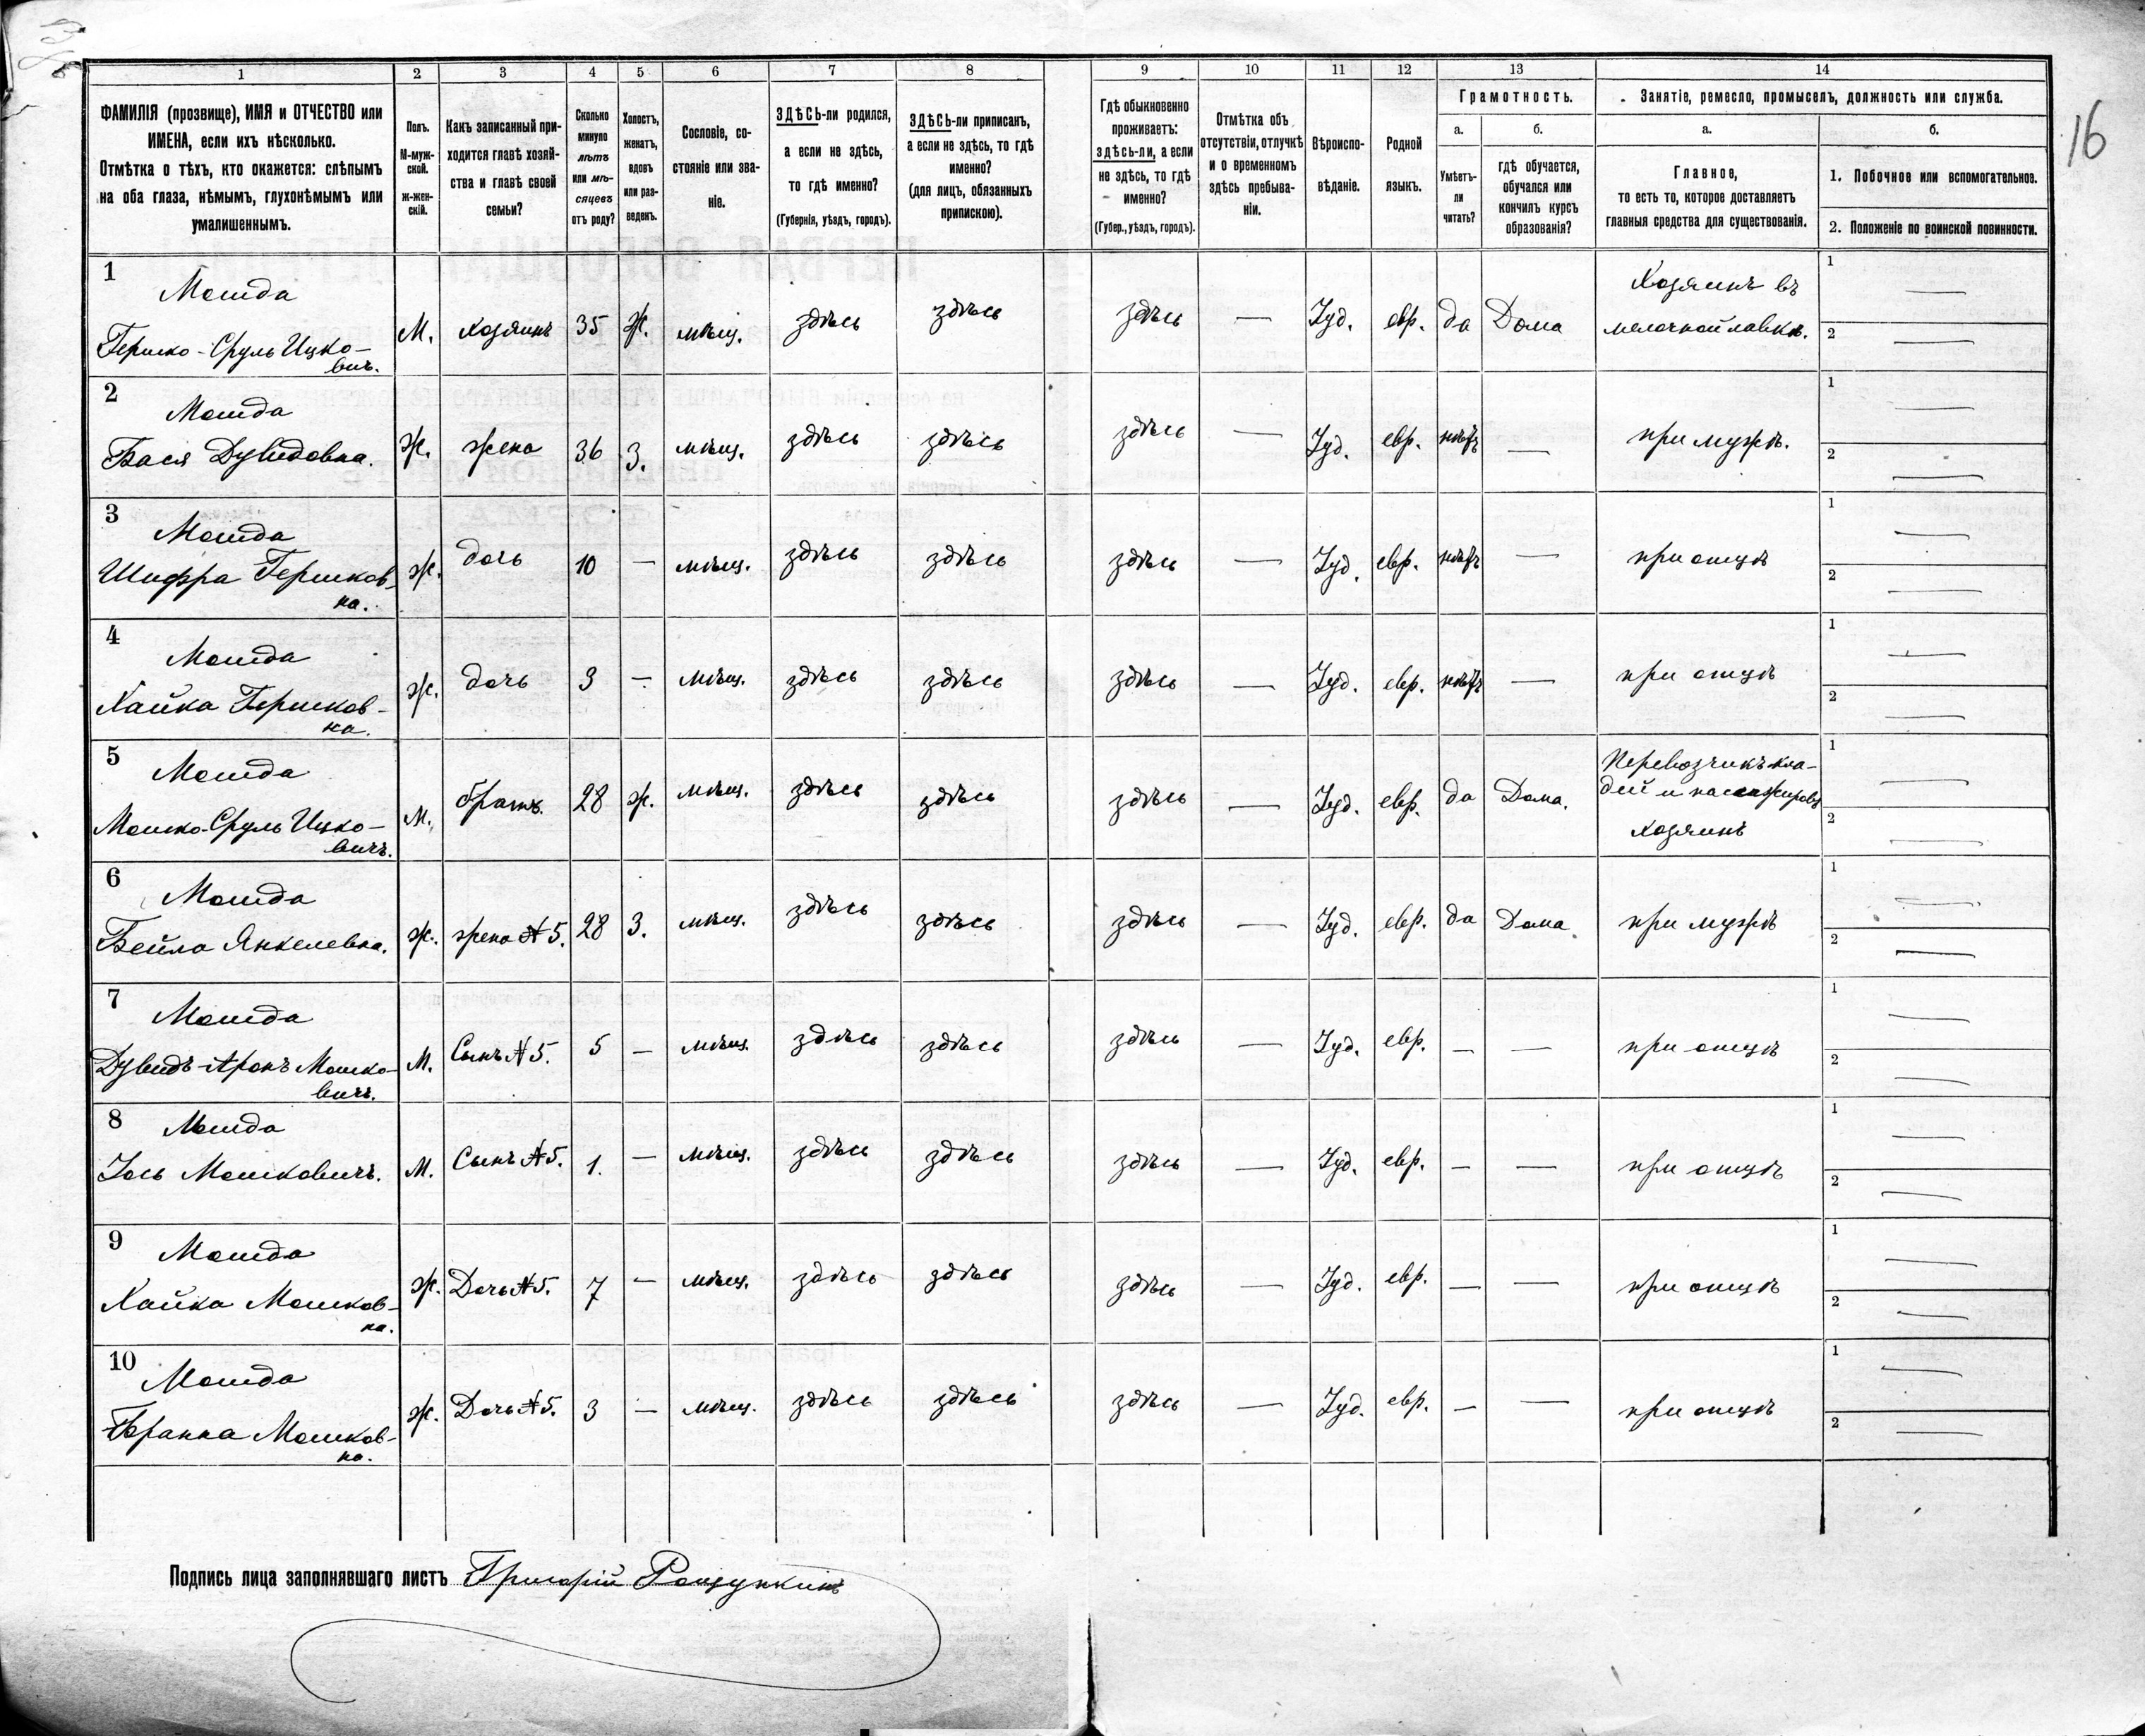 16
1 2 3 4 5 6 7 8 9 10 11 12 13 14
ФАМИЛІЯ (прозвище), ИМЯ и ОТЧЕСТВО или
ИМЕНА, если ихъ нѣсколько.
Отмѣтка о тѣхъ, кто окажется: слѣпымъ
на оба глаза, нѣмымъ, глухонѣмымъ или
умалишеннымъ.
Полъ.
М-муж-
ской.
ж-жен-
скій.
Какъ записанный при-
ходится главѣ хозяй-
ства и главѣ своей
семьи?
Сколько
минуло
лѣтъ
или мѣ-
сяцевъ
отъ роду?
Холостъ,
женатъ,
вдовъ
или раз-
веденъ.
Сословіе, со-
стояніе или зва-
ніе.
ЗДѢСЬ-ли родился,
а если не здѣсь,
то гдѣ именно?
(Губернія, уѣздъ, городъ).
ЗДѢСЬ-ли приписанъ,
а если не здѣсь, то гдѣ
именно?
(для лицъ, обязанныхъ
припискою).
Гдѣ обыкновенно
проживаетъ:
здѣсь-ли, а если
не здѣсь, то гдѣ
именно?
(Губер., уѣздъ, городъ).
Отмѣтка объ
отсутствіи, отлучкѣ
и о временномъ
здѣсь пребыва-
ніи.
Вѣроиспо-
вѣданіе.
Родной
языкъ.
Грамотность.
а.
Умѣетъ-
ли
читать?
б.
гдѣ обучается,
обучался или
кончилъ курсъ
образованія?
Занятіе, ремесло, промыселъ, должность или служба.
а.
Главное,
то есть то, которое доставляетъ
главныя средства для существованія.
б.
1. Побочное или вспомогательное.
2. Положеніе по воинской повинности.
1
Мошда
Гершко-Сруль Ицко-
вичъ.
М. хозяинъ 35 Ж. мѣщ. здѣсь здѣсь здѣсь — Іуд. евр. да Дома
Хозяинъ въ
мелочной лавкѣ.
1 —
2 —
2
Мошда
Бася Дувидовна.
Ж. жена 36 З. мѣщ. здѣсь здѣсь здѣсь — Іуд. евр. нѣтъ — при мужѣ.
1 —
2 —
3
Мошда
Шифра Гершков-
на.
Ж. дочь 10 — мѣщ. здѣсь здѣсь здѣсь — Іуд. евр. нѣтъ — при отцѣ
1 —
2 —
4
Мошда
Хайка Гершков-
на.
Ж. дочь 3 — мѣщ. здѣсь здѣсь здѣсь — Іуд. евр. нѣтъ — при отцѣ
1 —
2 —
5
Мошда
Мошко-Сруль Ицко-
вичъ.
М. братъ. 28 ж. мѣщ. здѣсь здѣсь здѣсь — Іуд. евр. да Дома.
Перевозчикъ кла-
дей и пассажировъ
хозяинъ
1 —
2 —
6
Мошда
Бейла Янкелевна.
ж. жена №5. 28 З. мѣщ. здѣсь здѣсь здѣсь — Іуд. евр. да Дома. при мужѣ
1 —
2 —
7
Мошда
Дувидъ-Аронъ Мошко-
вичъ.
М. Сынъ №5. 5 — мѣщ. здѣсь здѣсь здѣсь — Іуд. евр. — — при отцѣ
1 —
2 —
8
Мошда
Іось Мошковичъ.
М. Сынъ №5. 1. — мѣщ. здѣсь здѣсь здѣсь — Іуд. евр. — — при отцѣ
1 —
2 —
9
Мошда
Хайка Мошков-
на.
Ж. Дочь №5. 7 — мѣщ. здѣсь здѣсь здѣсь — Іуд. евр. — — при отцѣ
1 —
2 —
10
Мошда
Мошков-
на.
ж. Дочь №5. 3 — мѣщ. здѣсь здѣсь здѣсь — Іуд. евр. — — при отцѣ
1 —
2 —
Подпись лица заполнявшаго листъ Григорій